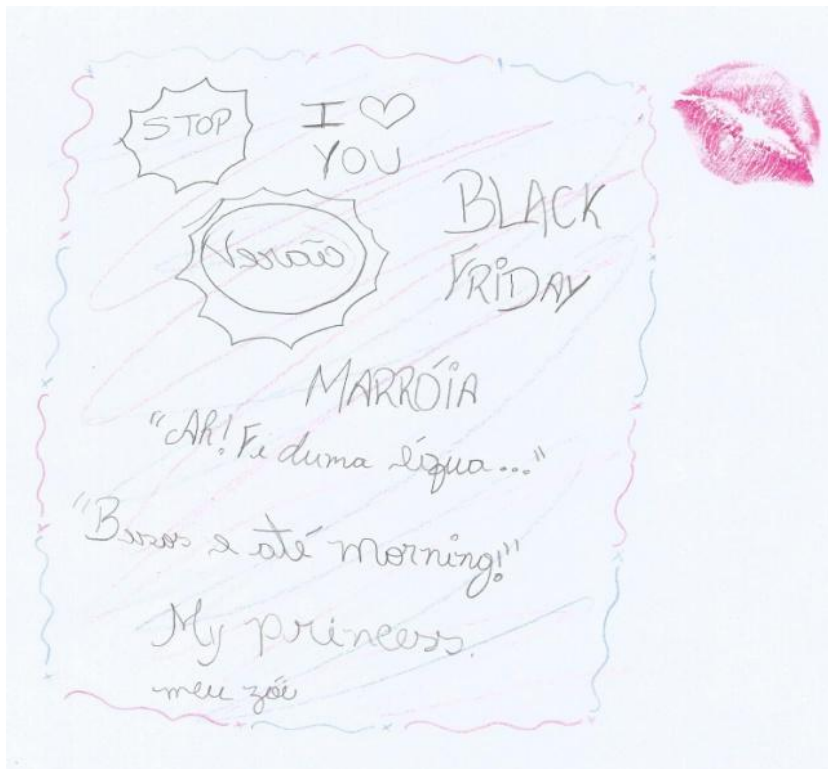 STOP
I ♡
YOU
Verão
BLACK
FRIDAY
MARRÓIA
"Ah! Fi duma égua..."
"Bezos e até morning!"
My princess.
meu zói